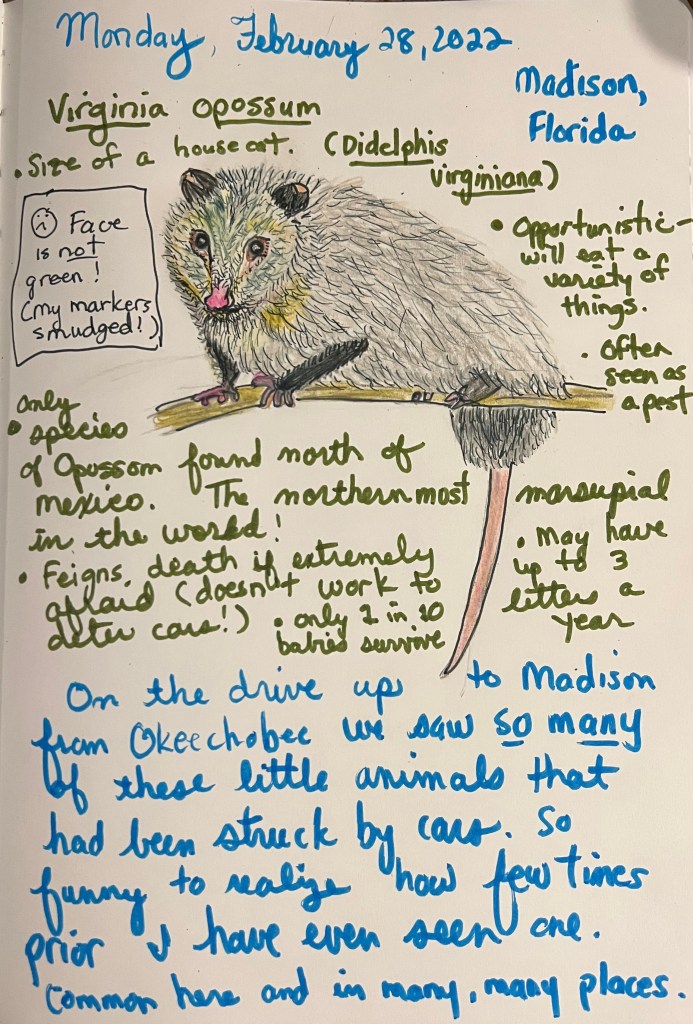 Monday, February 28, 2022
Madison,
Florida
Virginia opossum
• Size of a house cat.
(Didelphis
virginiana)
☹ Face
is not
green!
(my markers
smudged!)
• Opportunistic -
will eat a
variety of
things.
• Often
seen as
a pest
• only
species
of Opossom found north of
mexico. The northernmost marsupial
in the world!
• Feigns, death if extremely
afraid (doesn't work to
deter cars!)
• only 1 in 10
babies survive
• May have
up to 3
litters a
year
On the drive up to Madison
from Okeechobee we saw so many
of these little animals that
had been struck by cars. So
funny to realize how few times
prior I have even seen one.
Common here and in many, many places.